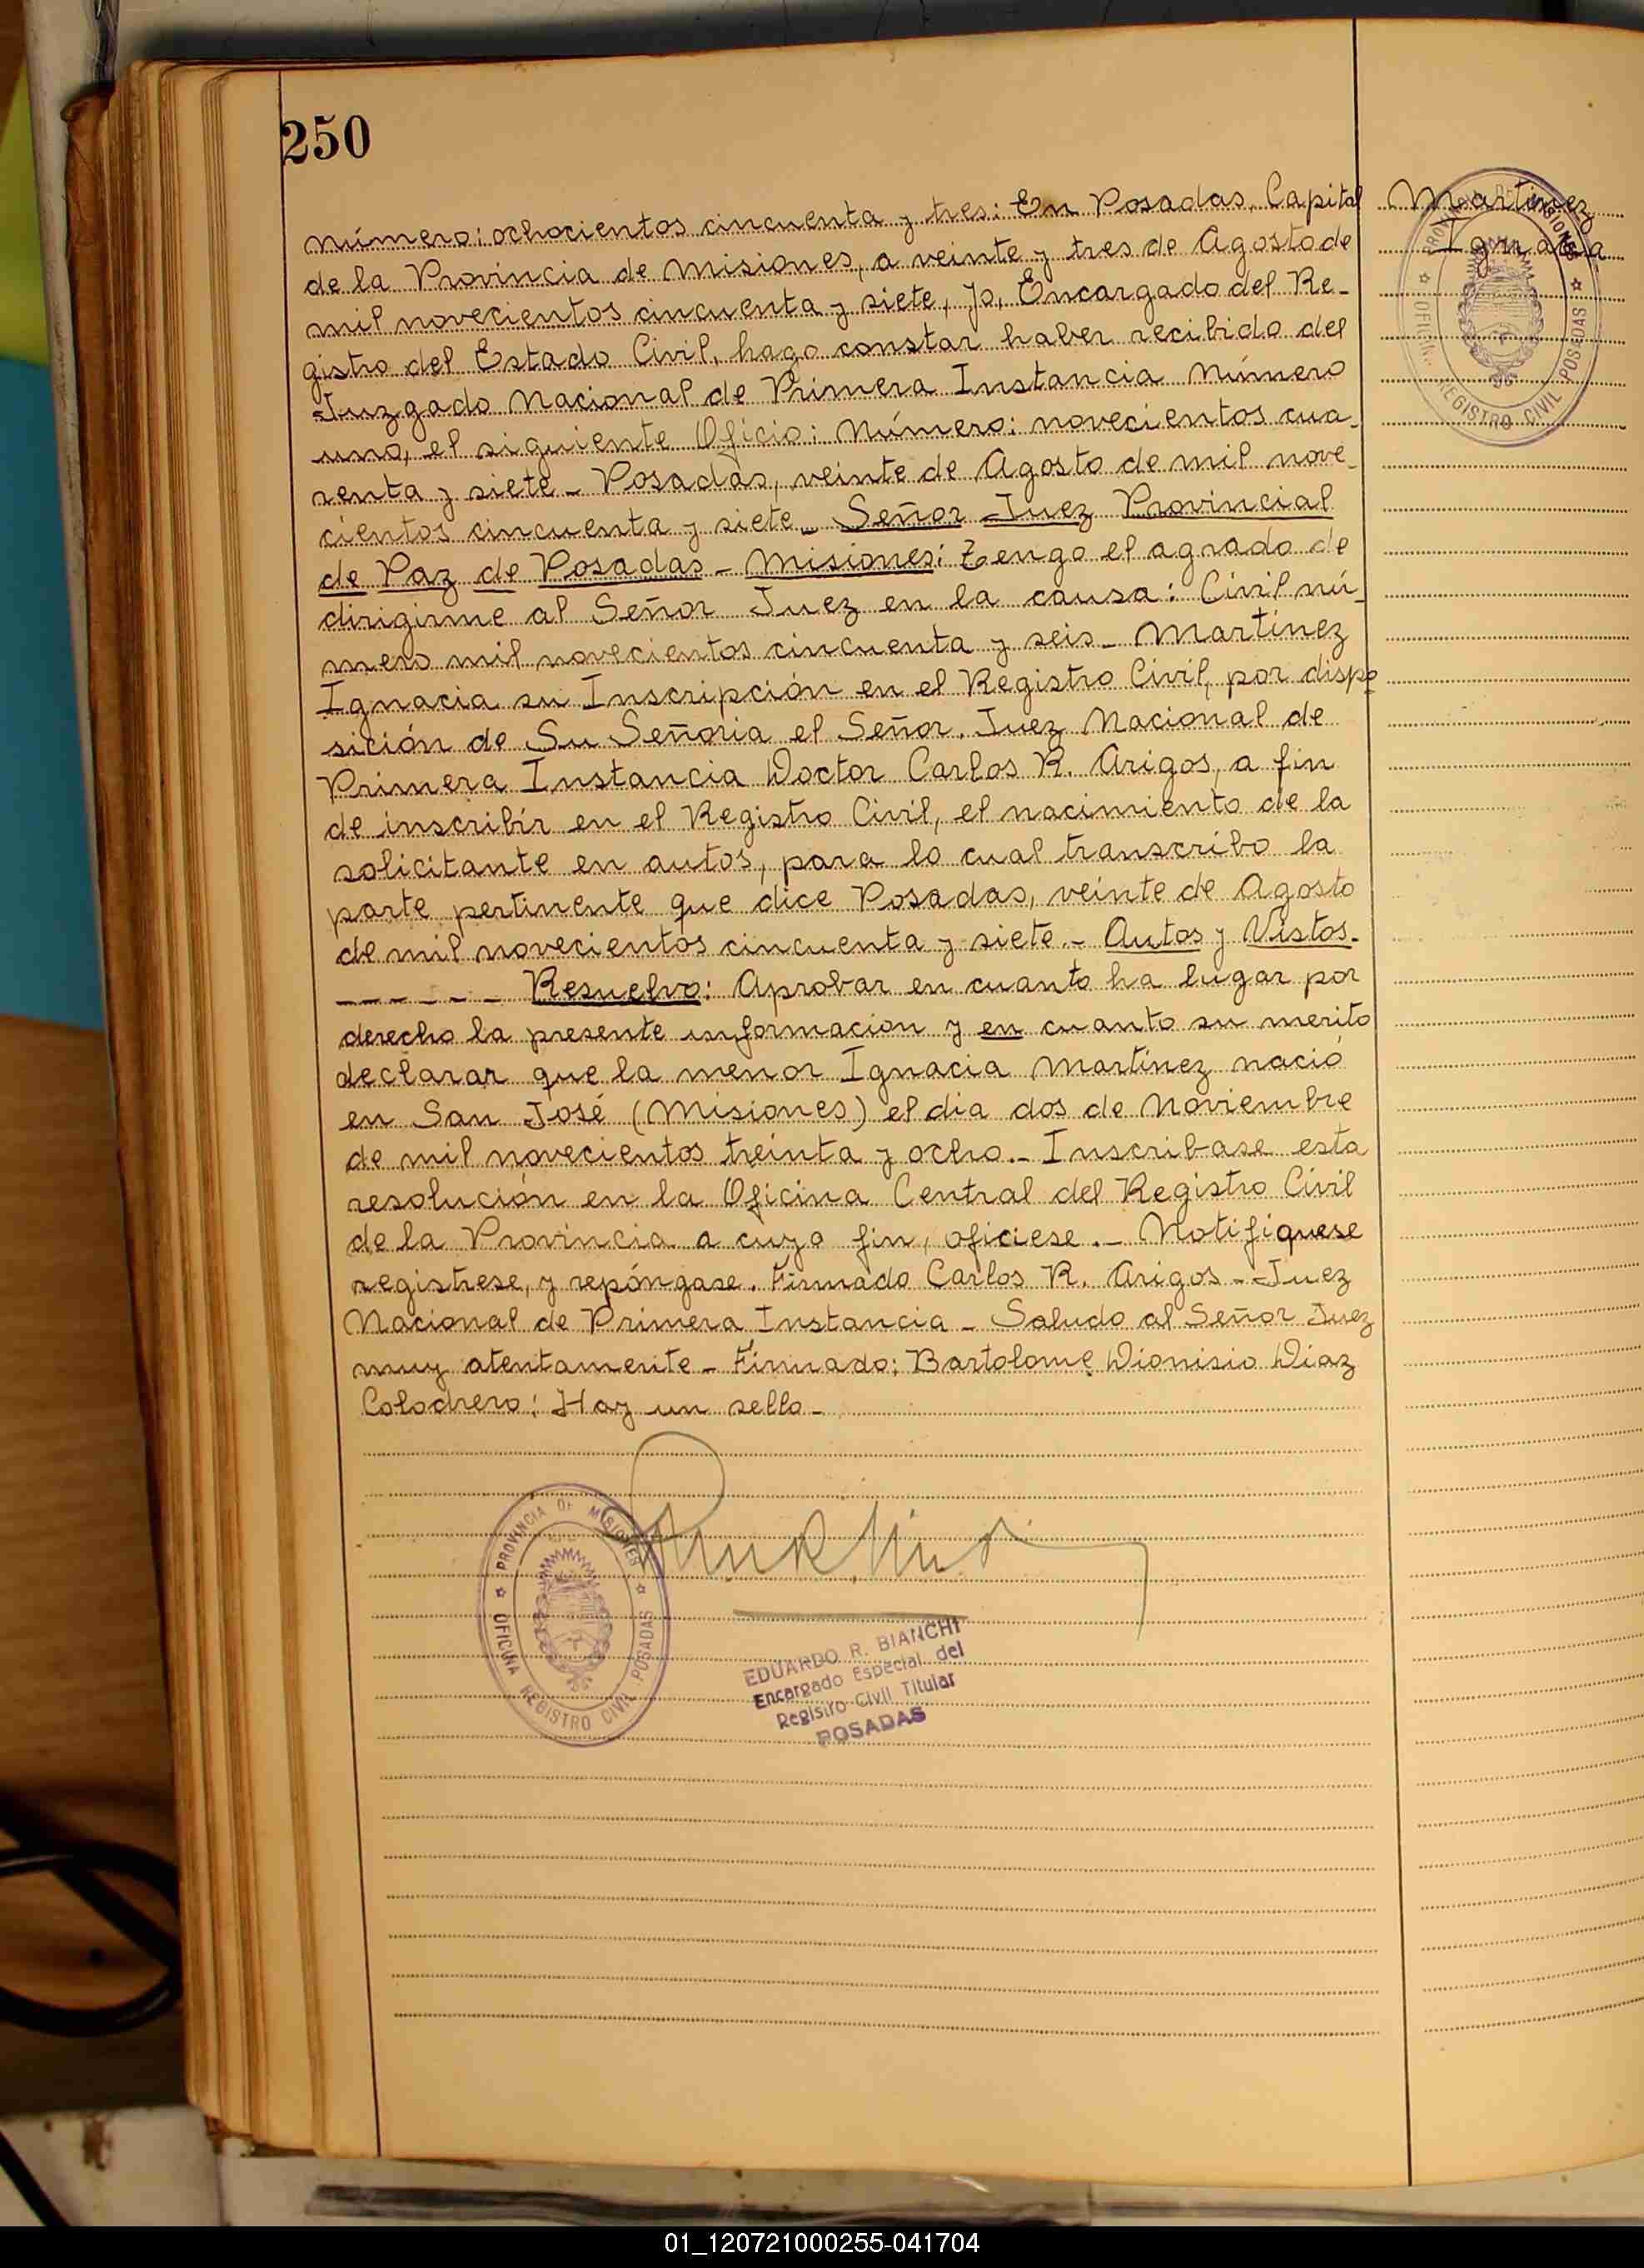 250
Número: ochocientos cincuenta y tres: En Posadas, Capital
de la Provincia de Misiones, a veinte y tres de Agosto de
mil novecientos cincuenta y siete, yo, Encargado del Re-
gistro del Estado Civil, hago constar haber recibido del
Juzgado Nacional de Primera Instancia Número
uno, el siguiente Oficio: Número: novecientos cua-
renta y siete - Posadas, veinte de Agosto de mil nove-
cientos cincuenta y siete - Señor Juez Provincial
de Paz de Posadas - Misiones: Tengo el agrado de
dirigirme al Señor Juez en la causa: Civil nú-
mero mil novecientos cincuenta y seis - Martínez
Ignacia su Inscripción en el Registro Civil, por dispo
sición de Su Señoria el Señor. Juez Nacional de
Primera Instancia Doctor Carlos R. Arigos, a fin
de inscribír en el Registro Civil, el nacimiento de la
solicitante en autos, para lo cual transcribo la
parte pertinente que dice Posadas, veinte de Agosto
de mil novecientos cincuenta y siete.- Autos y Vistos.
------ Resuelvo: Aprobar en cuanto ha lugar por
derecho la presente informacion y en cuanto su merito
declarar que la menor Ignacia Martínez nació
en San José (Misiones) el dia dos de Noviembre
de mil novecientos treinta y ocho.- Inscribase esta
resolución en la Oficina Central del Registro Civil
de la Provincia a cuyo fin, oficiese.- Notifiquese
registrese, y repóngase. Firmado Carlos R. Arigos - Juez
Nacional de Primera Instancia - Saludo al Señor Juez
muy atentamente - Firmado: Bartolome Dionisio Diaz
Colodrero: Hay un sello -
Martínez
Ignacia
PROVINCIA DE MISIONES
OFICINA REGISTRO CIVIL POSADAS
PROVINCIA DE MISIONES
OFICINA REGISTRO CIVIL POSADAS
EDUARDO R. BIANCHI
Encargado Especial del
Registro Civil Titular
POSADAS
01_120721000255-041704